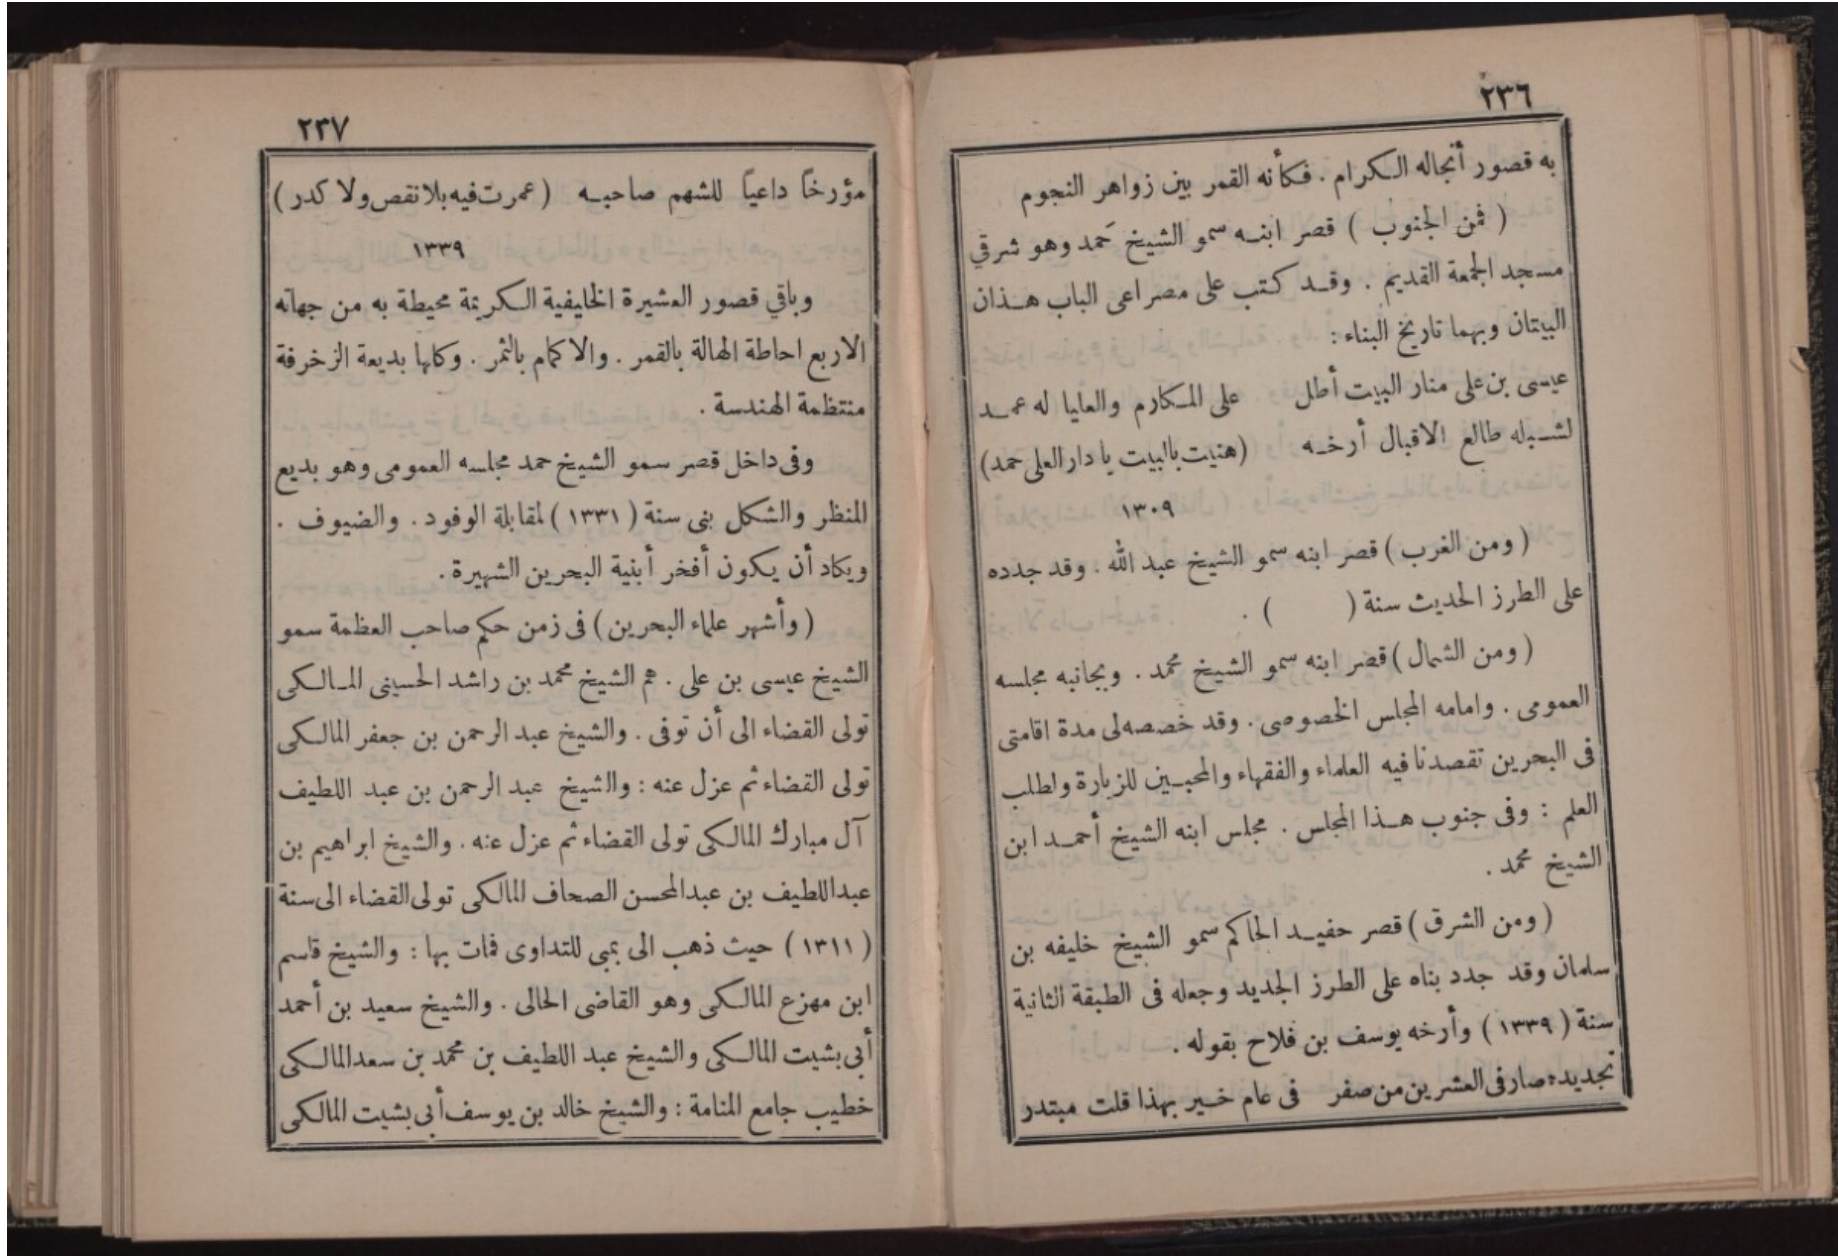 ٢٣٦
به قصور أنجاله الكرام . فكأنه القمر بين زواهر النجوم
( فمن الجنوب ) قصر ابنه سمو الشيخ حَمد وهو شرقي
مسجد الجمعة القديم . وقد كتب على مصراعى الباب هذان
البيتان وبهما تاريخ البناء :
عيسى بن على منار البيت أطل على المكارم والعليا له عمد
لشبله طالع الاقبال أرخه (هنيت بالبيت يا دار العلى حمد)
١٣٠٩
( ومن الغرب ) قصر ابنه سمو الشيخ عبد الله . وقد جدده
على الطرز الحديث سنة ( ) .
( ومن الشمال ) قصر ابنه سمو الشيخ محمد . وبجانبه مجلسه
العمومى . وامامه المجلس الخصوصى . وقد خصصه لى مدة اقامتى
فى البحرين تقصدنا فيه العلماء والفقهاء والمحبين للزيارة ولطلب
العلم : وفى جنوب هذا المجلس . مجلس ابنه الشيخ أحمد ابن
الشيخ محمد .
( ومن الشرق ) قصر حفيد الحاكم سمو الشيخ خليفه بن
سلمان وقد جدد بناه على الطرز الجديد وجعله فى الطبقة الثانية
سنة ( ١٣٣٩ ) وأرخه يوسف بن فلاح بقوله .
تجديده صار فى العشرين من صفر فى عام خير بهذا قلت مبتدر
٢٣٧
مؤرخاً داعياً للشهم صاحبه ( عمرت فيه بلا نقص ولا كدر )
١٣٣٩
وباقي قصور العشيرة الخليفية الكريمة محيطة به من جهاته
الاربع احاطة الهالة بالقمر . والاكمام بالثمر . وكلها بديعة الزخرفة
منتظمة الهندسة .
وفى داخل قصر سمو الشيخ حمد مجلسه العمومى وهو بديع
المنظر والشكل بنى سنة ( ١٣٣١ ) لمقابلة الوفود . والضيوف .
ويكاد أن يكون أفخر أبنية البحرين الشهيرة .
( وأشهر علماء البحرين ) فى زمن حكم صاحب العظمة سمو
الشيخ عيسى بن على . هم الشيخ محمد بن راشد الحسينى المالكى
تولى القضاء الى أن توفى . والشيخ عبد الرحمن بن جعفر المالكى
تولى القضاء ثم عزل عنه : والشيخ عبد الرحمن بن عبد اللطيف
آل مبارك المالكى تولى القضاء ثم عزل عنه . والشيخ ابراهيم بن
عبد اللطيف بن عبد المحسن الصحاف المالكى تولى القضاء الى سنة
( ١٣١١ ) حيث ذهب الى بمبى للتداوى فمات بها : والشيخ قاسم
ابن مهزع المالكى وهو القاضى الحالى . والشيخ سعيد بن أحمد
أبى بشيت المالكى والشيخ عبد اللطيف بن محمد بن سعد المالكى
خطيب جامع المنامة : والشيخ خالد بن يوسف أبى بشيت المالكى